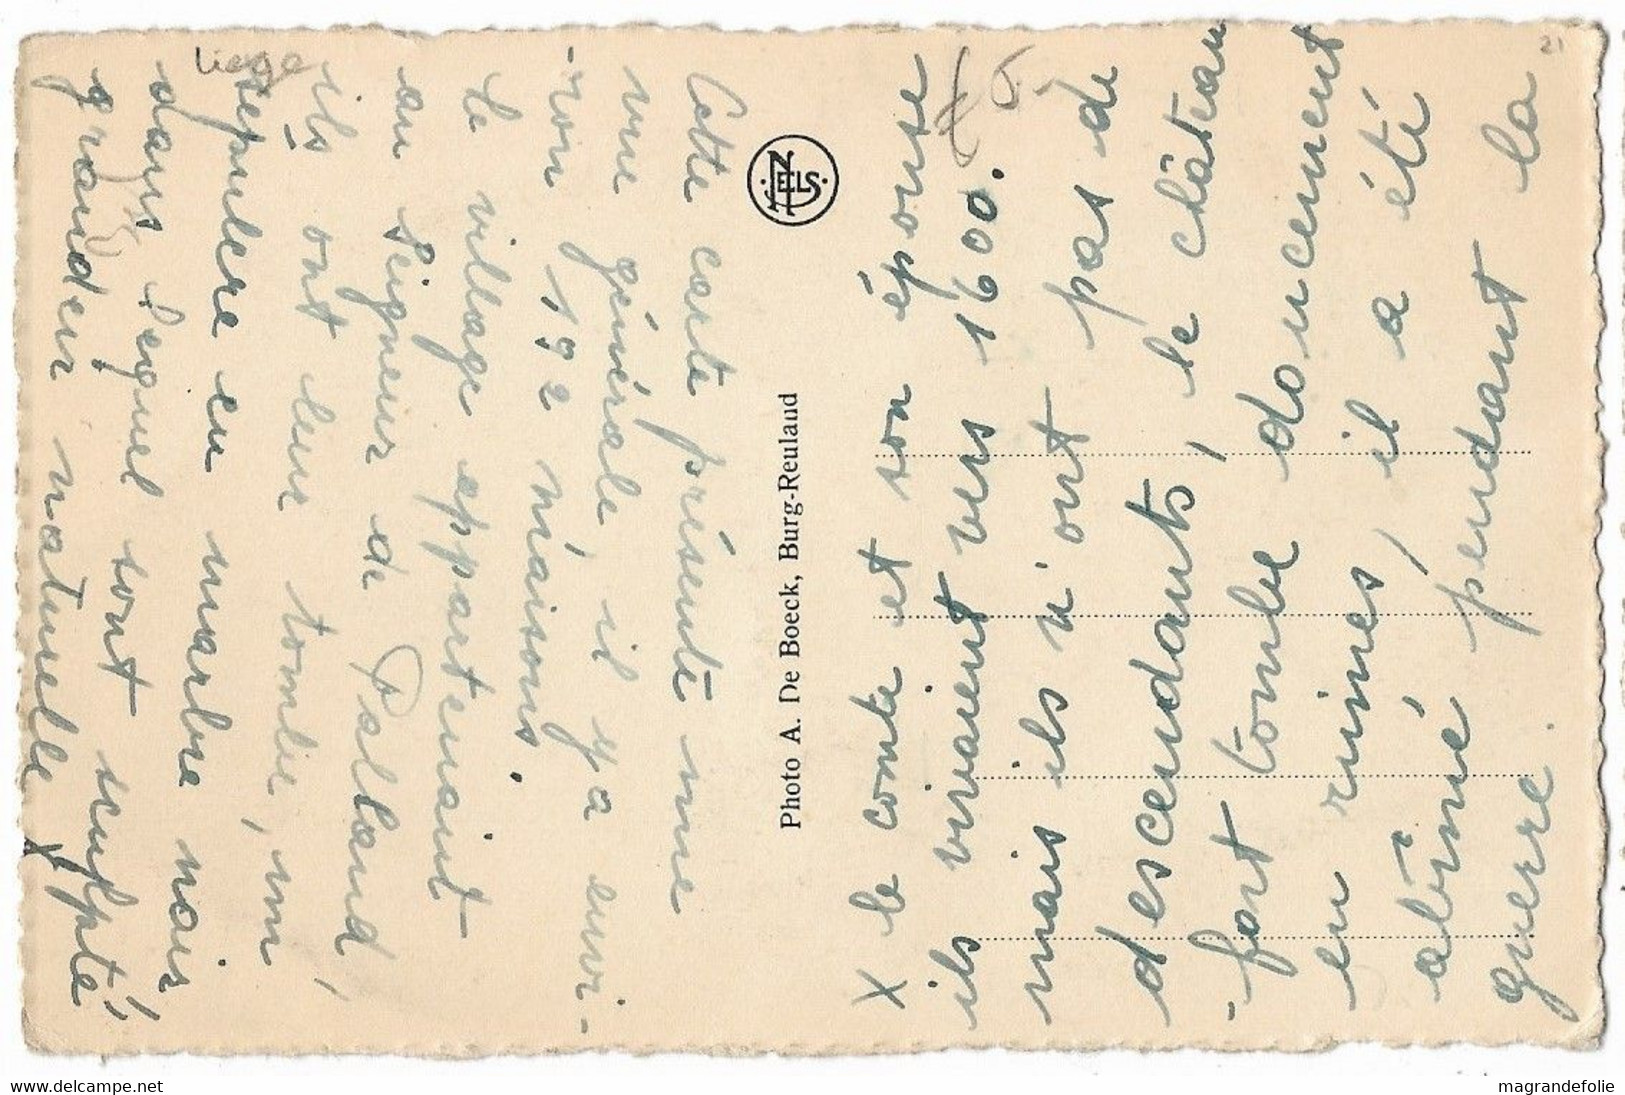 Cette carte présente une
vue générale, il y a envi-
-ron 192 maisons.
Le village appartenait
au Seigneur de Palland,
ils ont leur tombe, un
sépulcre en marbre noir
dans lequel sont sculpté,
grandeur naturelle X
Liège
NELS
Photo A. De Boeck, Burg-Reuland
X le comte et son épouse
ils vivaient vers 1600.
mais ils n'ont pas de
descendants, le château
-fort tombe doucement
en ruines, il a été
abîmé pendant la
guerre.
21
www.delcampe.net
magrandefolie